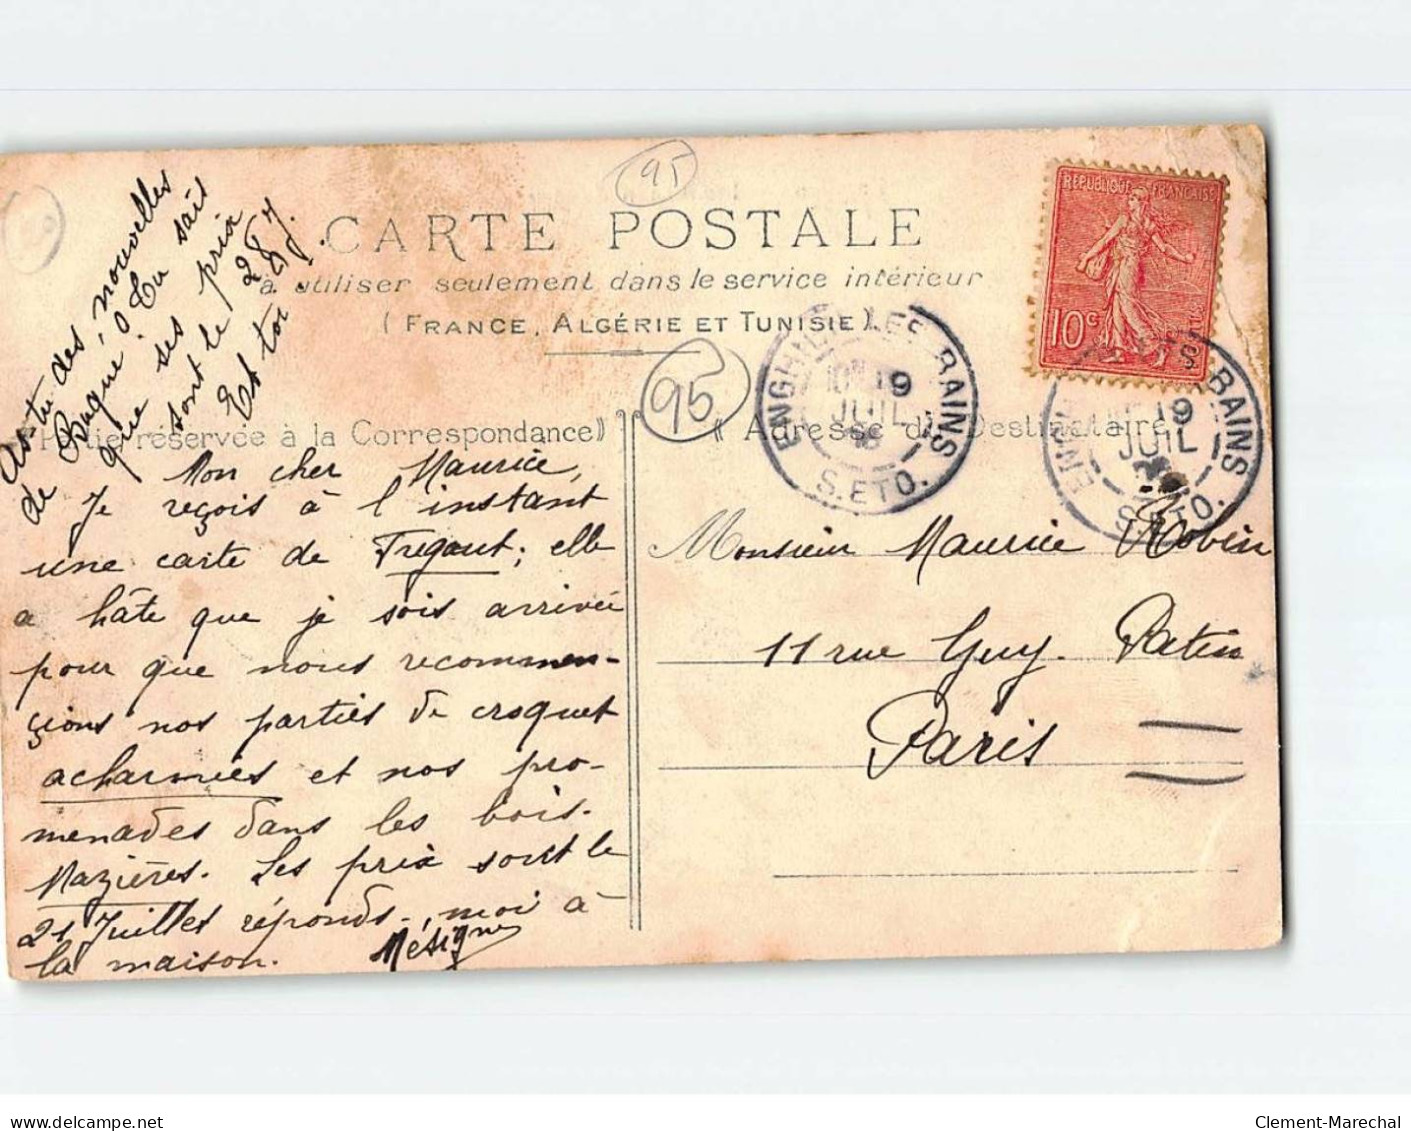 as-tu des, nouvelles
de Bugué? Tu sais
que ses prix
sont le 28 7.
Et toi
95
CARTE POSTALE
à utiliser seulement dans le service intérieur
(FRANCE, ALGÉRIE ET TUNISIE).
RÉPUBLIQUE FRANÇAISE
10c
POSTES
95
ENGHIEN LES BAINS
19
JUIL
S. ET O.
ENGHIEN LES BAINS
19
JUIL
S. ET O.
Partie réservée à la Correspondance
Adresse du Destinataire
Mon cher Maurice,
Je reçois à l'instant
une carte de Tregout; elle
a hâte que je sois arrivée
pour que nous recommen-
çions nos parties de croquet
acharmées et nos pro-
menades dans les bois.
Mazières. Les prix sont le
21 Juillet réponds-moi à
la maison.
Monsieur Maurice Robin
11 rue Guy. Patin
Paris
Clement-Marechal